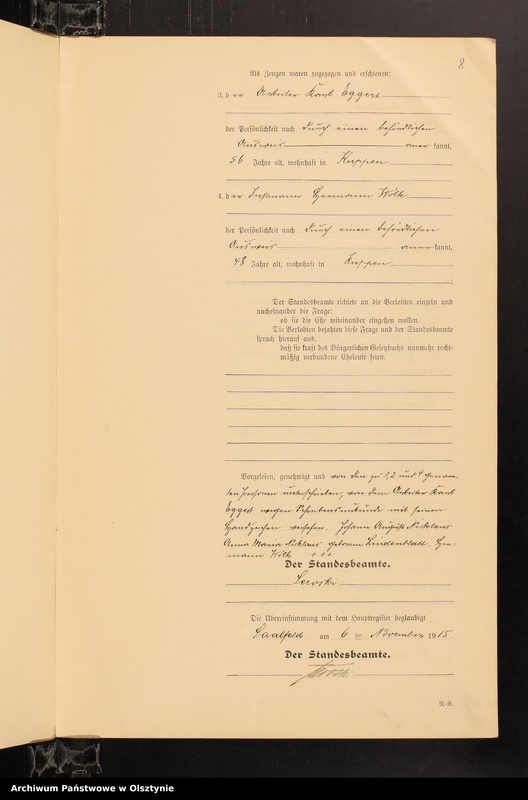 8
Als Zeugen waren zugezogen und erschienen:
3. der Arbeiter Karl Eggert
der Persönlichkeit nach durch einen behördlichen
Ausweis anerkannt,
56 Jahre alt, wohnhaft in Kuppen
4. der Instmann Hermann Wölk
der Persönlichkeit nach durch einen behördlichen
Ausweis anerkannt,
48 Jahre alt, wohnhaft in Kuppen
;
Der Standesbeamte richtete an die Verlobten einzeln und
nacheinander die Frage:
ob sie die Ehe miteinander eingehen wollen.
Die Verlobten bejahten diese Frage und der Standesbeamte
sprach hierauf aus,
daß sie kraft des Bürgerlichen Gesetzbuchs nunmehr recht-
mäßig verbundene Eheleute seien.
Vorgelesen, genehmigt und von den zu 1, 2 und 4 genann-
ten Personen unterschrieben, von dem Arbeiter Karl
Eggert wegen Schreibensunkunde mit seinen
Handzeichen versehen. Johann August Nicklaus
Anna Maria Nicklaus geborene Lindenblatt. Her-
mann Wölk +++
Der Standesbeamte.
Die Übereinstimmung mit dem Hauptregister beglaubigt
Saalfeld am 6 ten November 1915.
Der Standesbeamte.
N.-B.
Archiwum Państwowe w Olsztynie